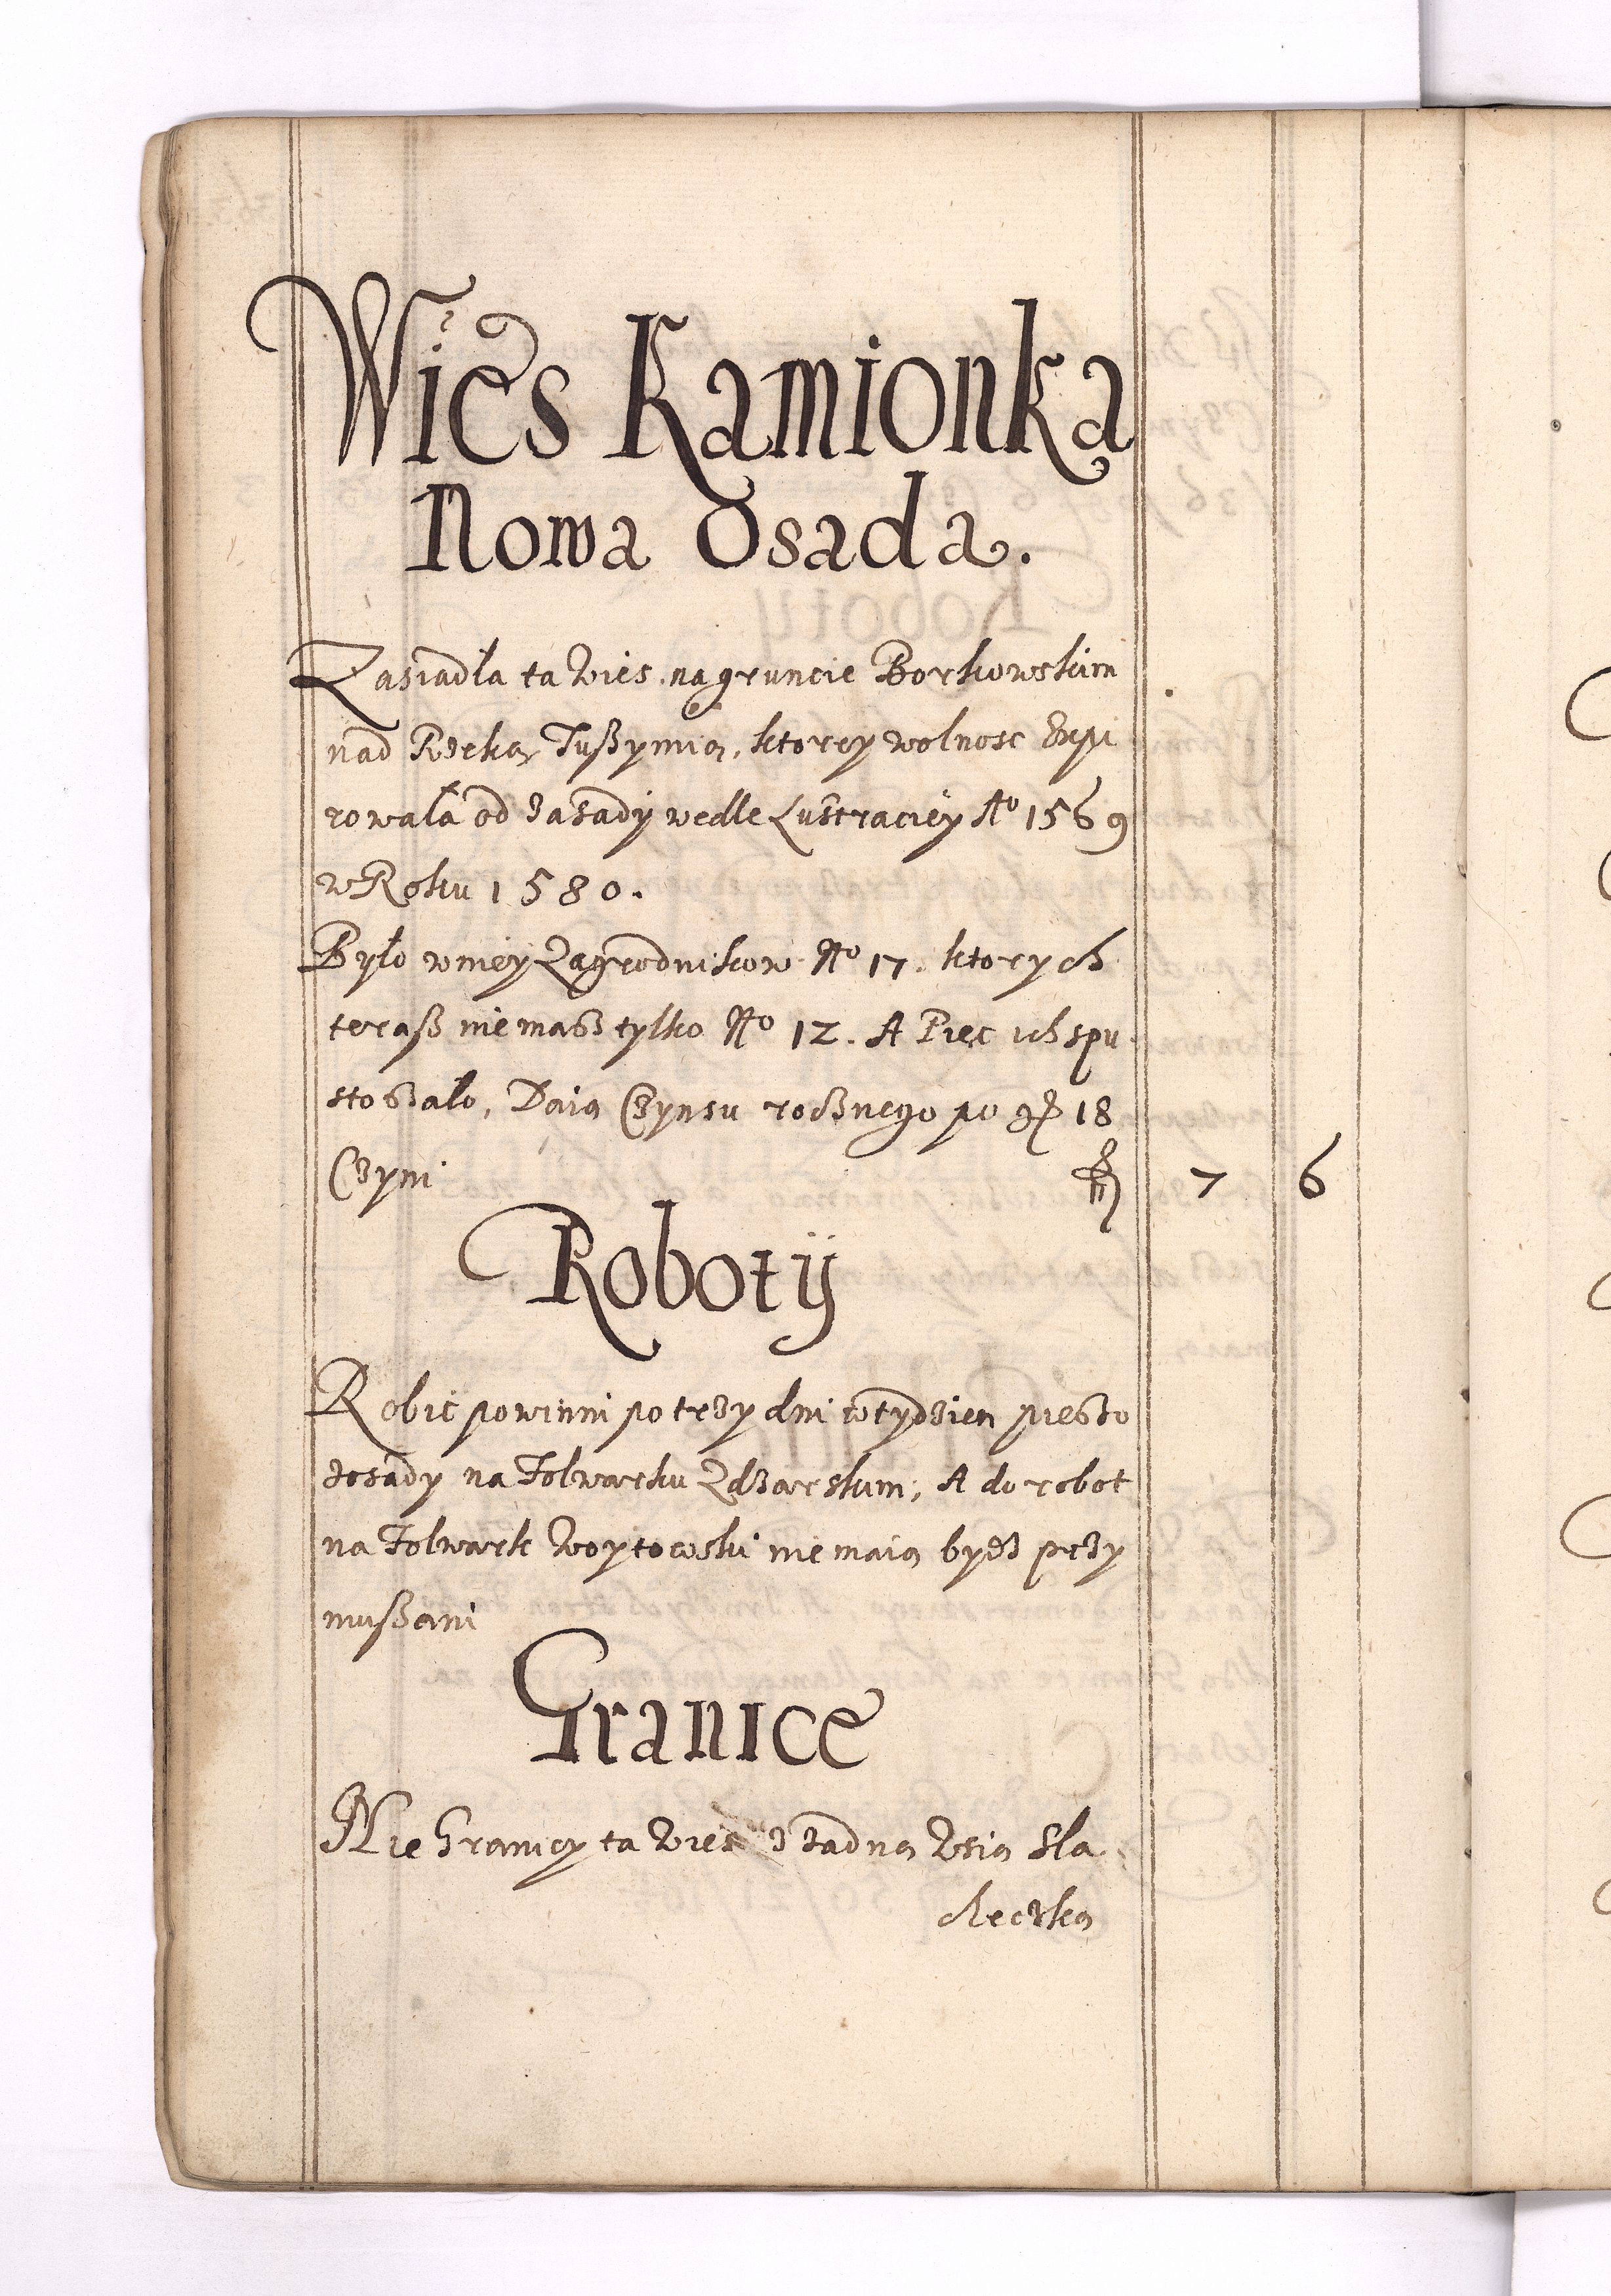 Wieś Kamionka
Nowa Osada.
Zasiadła ta Wies na gruncie Borkowskim
nad Rzeką Tuszymią, ktorey wolnosc Expi
rowała od zasady wedle Lustraciey Aº 1569
w Roku 1580.
Było w niey Zagrodnikow Nº 17. ktorych
teraß nie masz tylko Nº 12. A Pięc ich spu
stoszało, Daią Czynsu rocznego po g 18
Czyni 7 6
Roboty
Robić powinni po trzy dni w tydzien pieszo
z osady na Folwarku Zdzarskim, A do robot
na Folwark Woytowski nie maią bydz przy
mußani
Granice
Nie Graniczy ta Wies z zadną Wsią Sla
checką